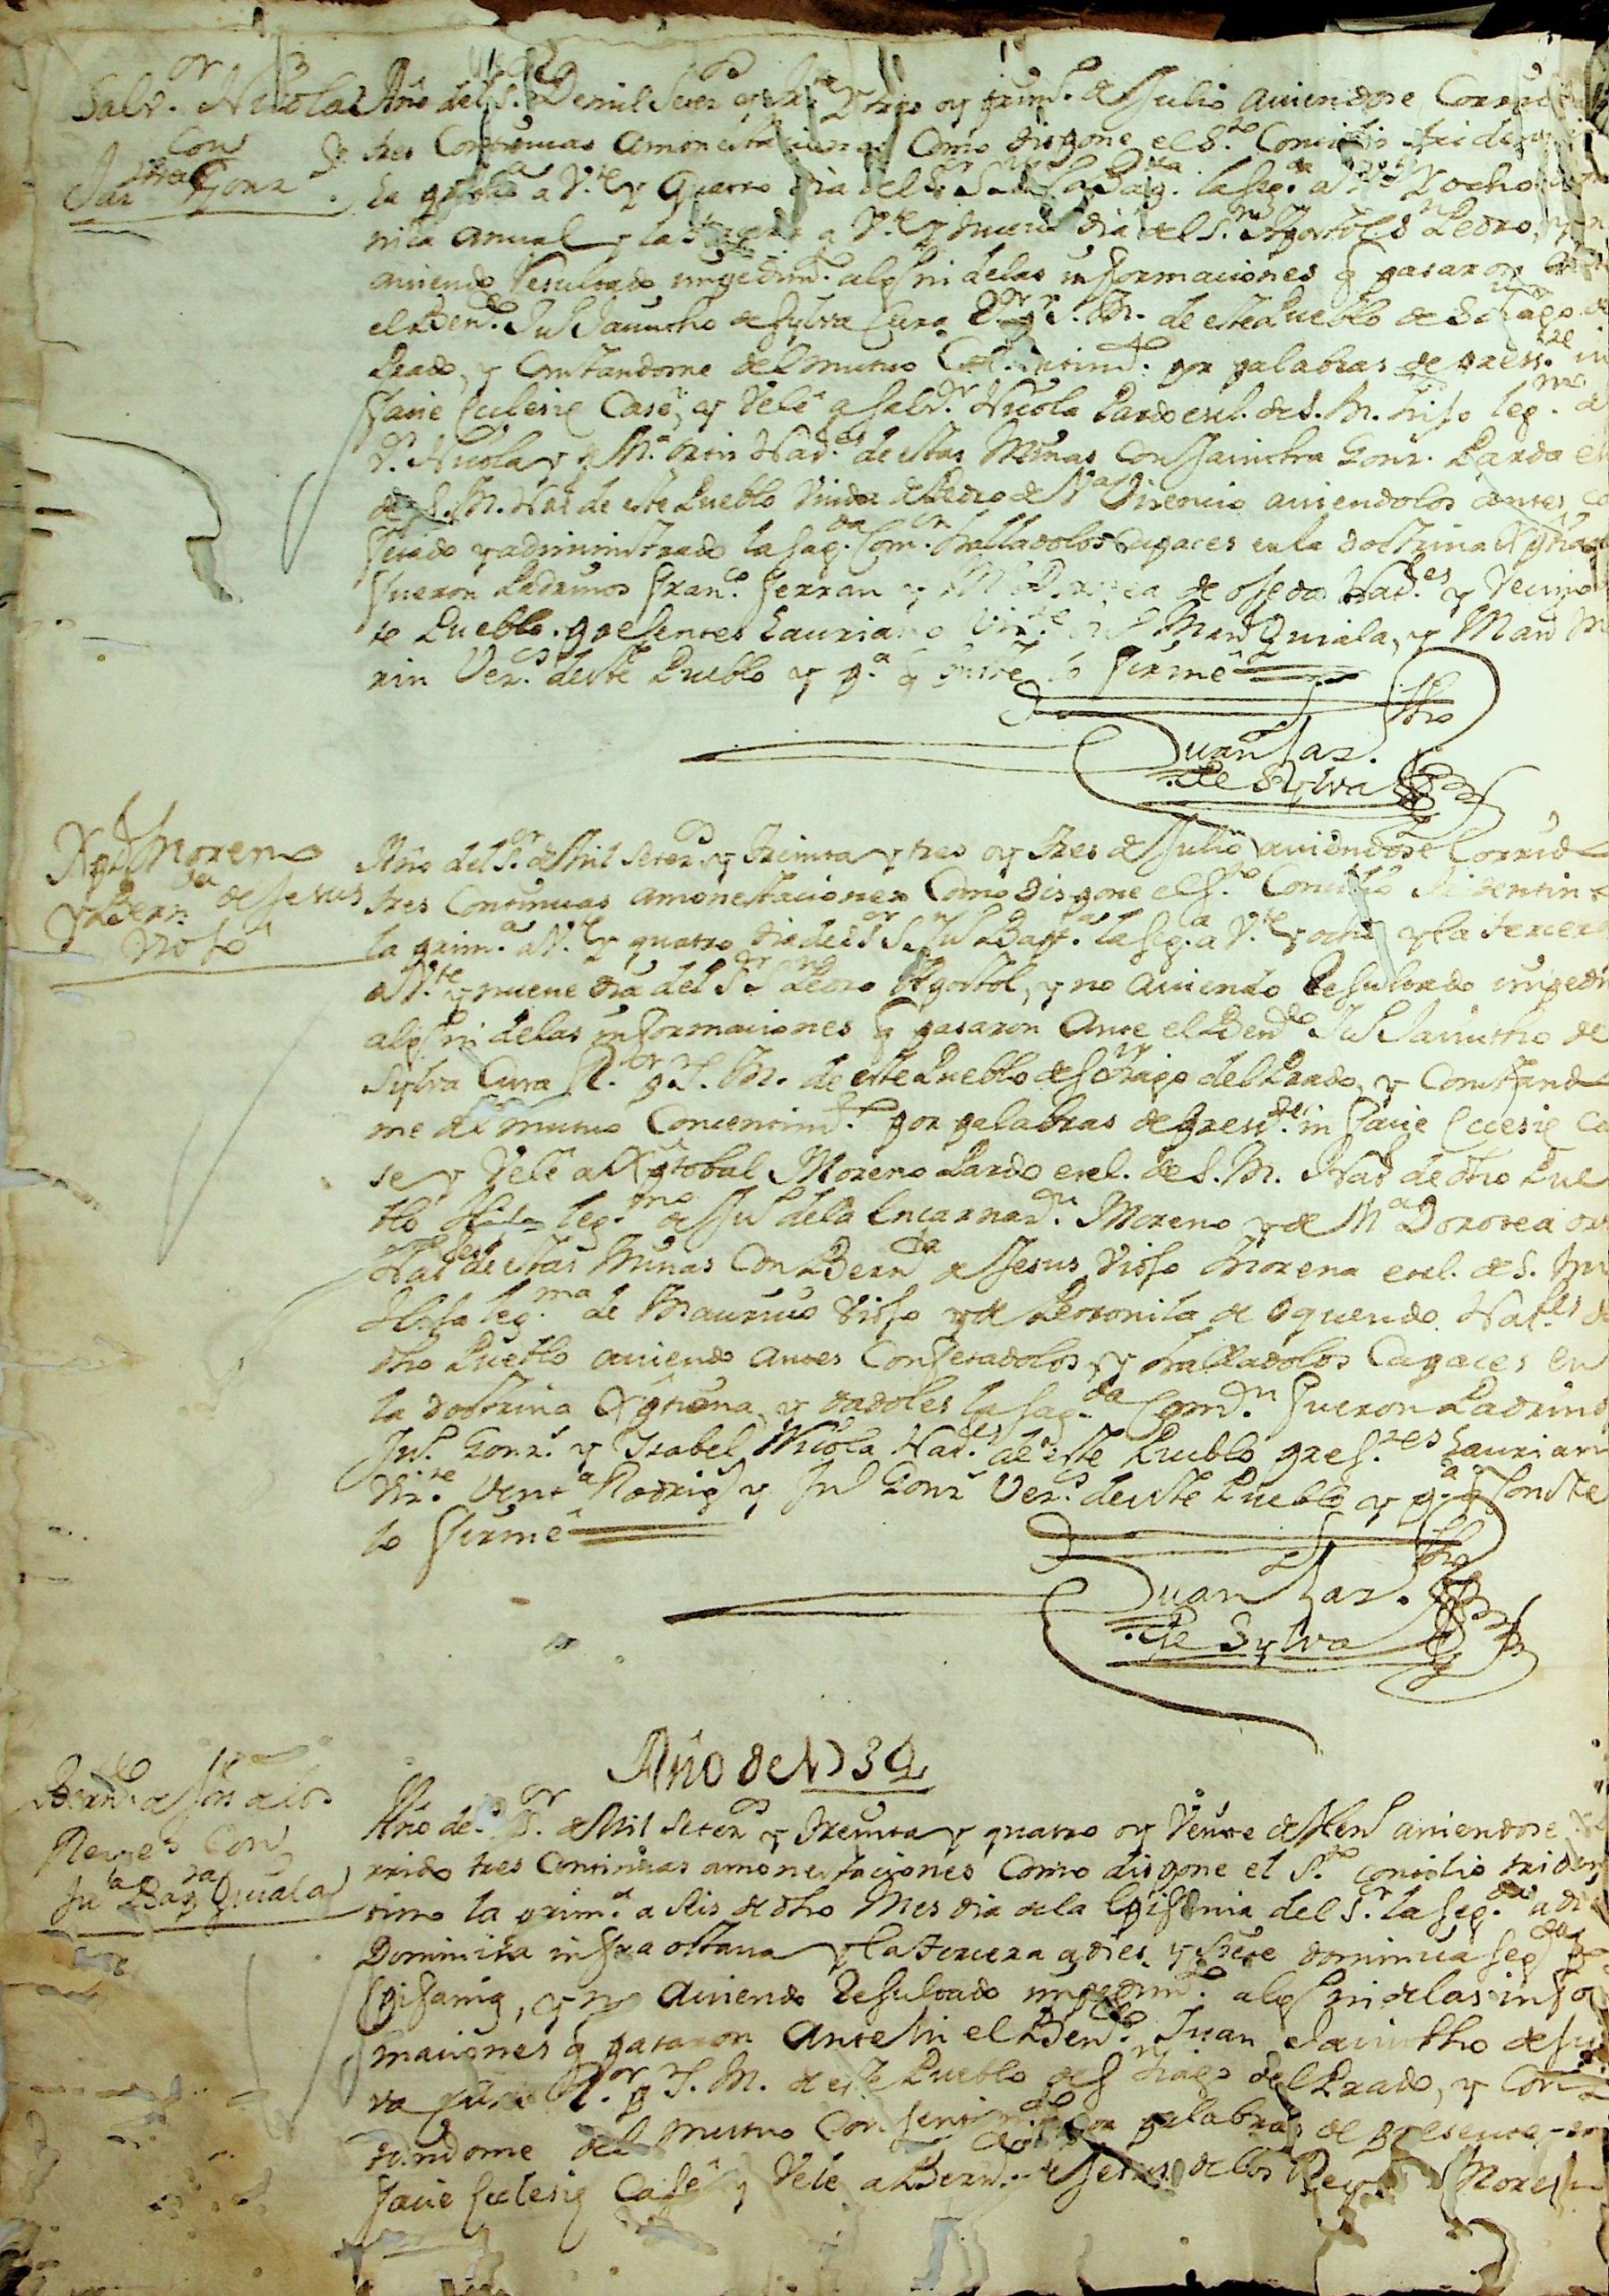 Salv.or Nicolas
con
Jacintha Gonz.
Año del S.or De mil Setes y tr.ta y tres oy prim.o de Julio aviendose Corrido
tres Continuas amonestaciones Como dispone el S.to Concilio tridentino
la prim.a a V.te y quatro dia del S.or S. Ju.o Bap.ta la seg.da a V.te y ocho
nica anual y la tercera a V.te y nueve dia del S.r Apostol S.n Pedro, y no
aviendo Resultado impedim.to alg. ni de las informaciones q pasaron
el Ben.do Ju.o Jacintho de Sylva Cura R.or p.r S. M. de este Pueblo de S.tiago del
Prado, y Constandome del mutuo Consentim.to por palabras de press.te in
facie Eclesie Casé, y Velé a Salv.r Nicola Pardo escl. de S. M. hijo leg.mo de
V. Nicola y de M.a Nat.es de estas Minas con Jaintha Gonz. Parda es
de S. M. Nat de este Pueblo Viuda de Pedro de aviendolos antes co
fesado y administrado la Sag.da Com.n halladolos Capaces en la doctrina Xptiana
fueron Padrinos Fran.co Ferran y M.a de ojeda Nat.es y Vecinos
te Pueblo. presentes Lauriano Vis.te Man Quiala, y Man M
rin Vez.os deste Pueblo y p.a q Conste lo firmé
Juan Jaz.tho
de Sylva
Xpl Moreno
y Bern.da de Jesus
Viojo
Año del S.or de Mil Setes.os y Treinta y tres oy tres de Julio aviendose Corrido
tres Continuas amonestaciones Como dispone el S.to Concilio tridentino
la prim.a a V.te y quatro dia del S.or S.n Ju.o Bapt.a la seg.a a V.te y ocho y la tercera
a V.te y nueve dia del S.or S.n Pedro Apostol, y no aviendo Resultado impedim
alg. ni de las informaciones q pasaron Ante el Bend.do Ju.o Jacintho de
Sylva Cura R.or p.r S. M. de este Pueblo de S.tiago del Prado, y Constando
me del mutuo Concentim.to por palabras de press.te in facie Eclesie Ca
se y Velé a Xptobal Moreno Pardo escl. de S. M. Nat de dho Pue
blo hijo leg.mo de Ju.o de la Encarnac.n Moreno y de M.a Dorotea
Nat.es de estas Minas Con Bern.da de Jesus Viojo Morena escl. de S. M
Hija leg.ma de Mauricio Viojo y de Petronila de Oquendo Nat.les de
dho Pueblo aviendo antes Confesadolos, y halladolos Capaces en
la doctrina Xptiana, y dadoles la Sag.da Com.n fueron Padrinos
Ju.o Gonz. y Isabel Nicola Nat.es de este Pueblo pres.tes Lauriano
Vis.te Vent.a Rodrig y Ju.o Gonz Vez.os deste Pueblo y p.a q Conste
lo firmé
Juan Jaz.tho
de Sylva
Año de 1734
Bern.do de Jesus de los
Reyes Con
Ju.a Bap.ta Quiala
Año del S.or de Mil Setes.os y Treinta y quatro oy Veinte de Hen.o aviendose Co
rrido tres Continuas amonestaciones Como dispone el S.to concilio triden
tino la prim.a a Seis de dho Mes dia de la Epifania del S.r la Seg.da a di
Dominica infraoctava y la tercera a dies y siete dominica seg.da
Epifania, y no aviendo Resultado impedim.to alg. ni de las infor
maciones q pasaron Ante mi el Ben.do Juan Jacintho de Syl
va Cura R.or p.r S. M. de este Pueblo de S.tiago del Prado, y Cons
tandome del mutuo Consentim.to por palabras de presente en
facie Eclesie Casé y Velé a Bern.do de Jesus de los Reyes Moreno